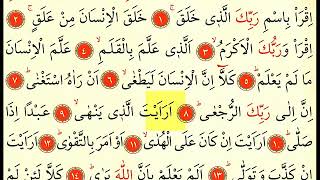 اِقْرَأْ بِاسْمِ رَبِّكَ الَّذٖى خَلَقَۚ ﴿١﴾ خَلَقَ الْاِنْسَانَ مِنْ عَلَقٍۚ ﴿٢﴾
اِقْرَأْ وَرَبُّكَ الْاَكْرَمُۙ ﴿٣﴾ اَلَّذٖى عَلَّمَ بِالْقَلَمِۙ ﴿٤﴾ عَلَّمَ الْاِنْسَانَ
مَا لَمْ يَعْلَمْؕ ﴿٥﴾ كَلَّٓا اِنَّ الْاِنْسَانَ لَيَطْغٰىۙ ﴿٦﴾ اَنْ رَاٰهُ اسْتَغْنٰىؕ ﴿٧﴾
اِنَّ اِلٰى رَبِّكَ الرُّجْعٰىؕ ﴿٨﴾ اَرَاَيْتَ الَّذٖى يَنْهٰىۙ ﴿٩﴾ عَبْدًا اِذَا
صَلّٰىؕ ﴿١٠﴾ اَرَاَيْتَ اِنْ كَانَ عَلَى الْهُدٰىۙ ﴿١١﴾ اَوْ اَمَرَ بِالتَّقْوٰىؕ ﴿١٢﴾ اَرَاَيْتَ
اِنْ كَذَّبَ وَتَوَلّٰىؕ ﴿١٣﴾ اَلَمْ يَعْلَمْ بِاَنَّ اللّٰهَ يَرٰىؕ ﴿١٤﴾ كَلَّا لَئِنْ لَمْ